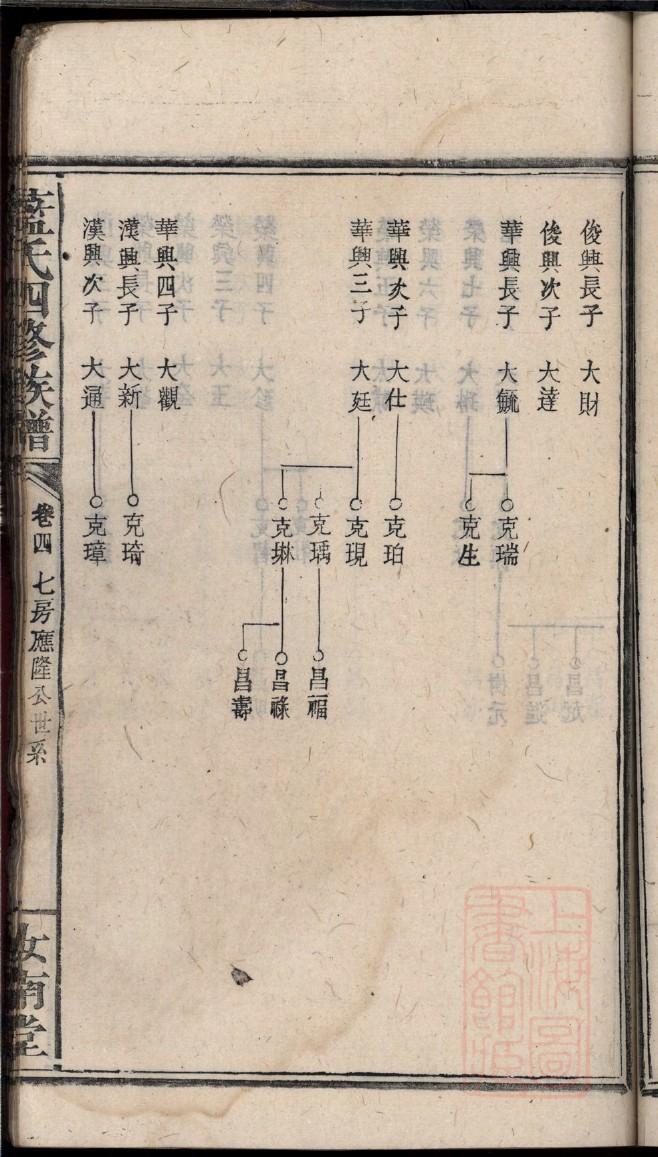 俊興長子 大財
俊興次子 大達
華興長子 大毓 克瑞
克生
華興次子 大仕 克珀
華興三子 大廷 克現
克瑀 昌福
克琳 昌祿
昌壽
華興四子 大觀
漢興長子 大新 克琦
漢興次子 大通 克璋
藍氏四修族譜 卷四 七房應隆公世系 汝南堂
上海圖書館藏